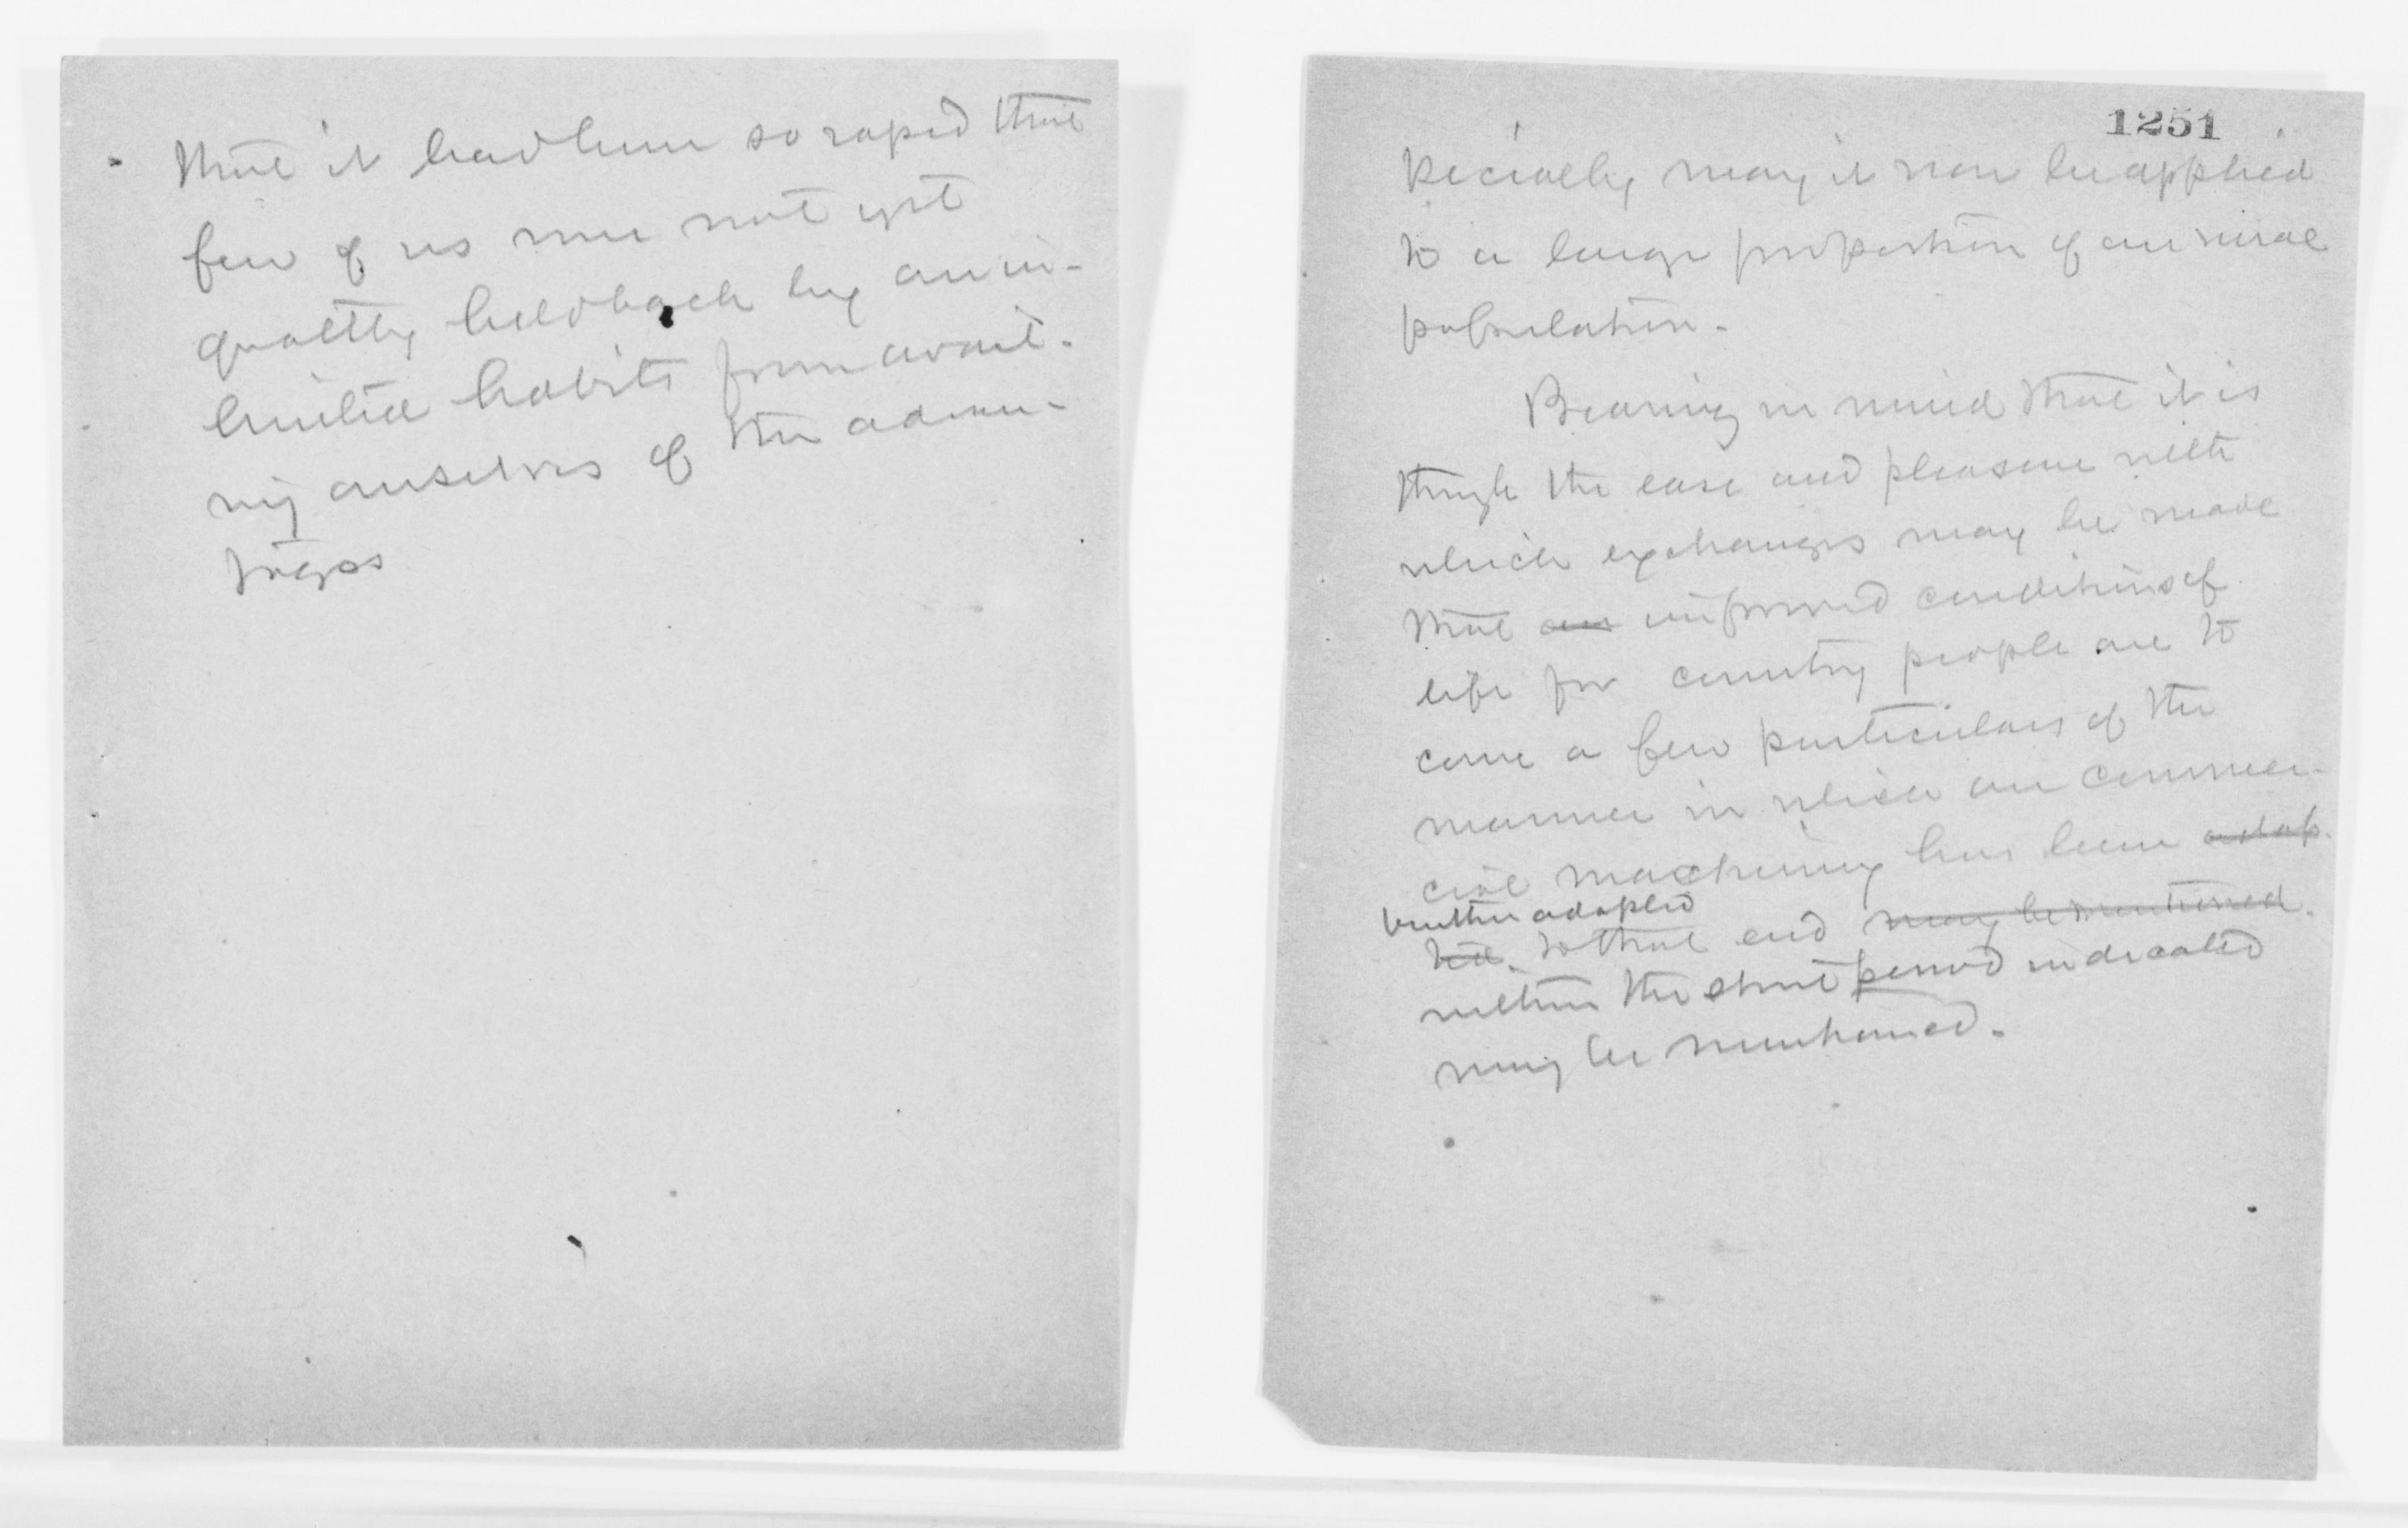 that it has been so rapid that
few of us are not yet
greatly held back by our in-
herited habits from avail-
ing ourselves of the advan-
tages
1251
pecially may it now be applied
to a large proportion of our rural
population.
Bearing in mind that it is
through the ease and pleasure with
which exchanges may be made
that an improved conditions of
life for country people are to
come a few particulars of the
manner in which our commer-
cial machinery has been adap-
better adapted
ted to that end may be mentioned.
within the short period indicated
may be mentioned.